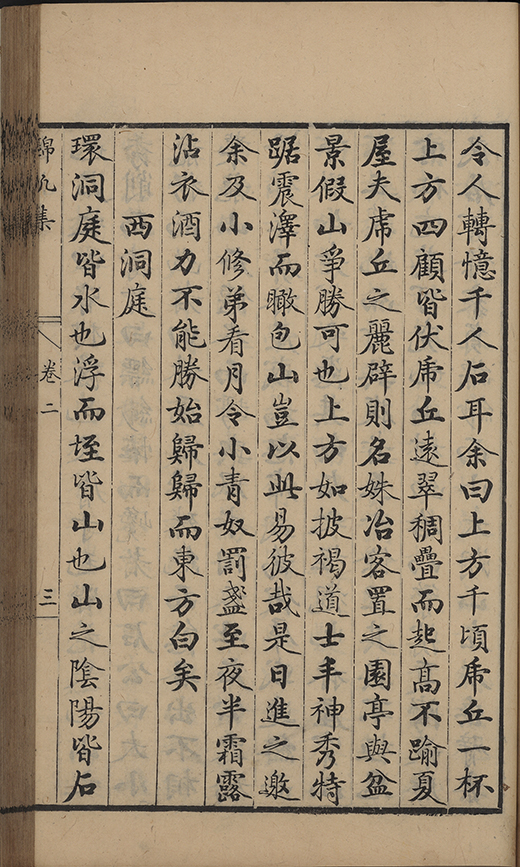 令人轉憶千人石耳余曰上方千頃虎丘一杯
上方四顧皆伏虎丘遠翠稠疊而起高不踰夏
屋夫虎丘之麗辟則名姝冶客置之園亭與盆
景假山爭勝可也上方如披褐道士丰神秀特
踞震澤而瞰包山豈以此易彼哉是日進之邀
余及小修弟看月令小青奴罰盞至夜半霜露
沾衣酒力不能勝始歸歸而東方白矣
西洞庭
環洞庭皆水也浮而垤皆山也山之陰陽皆石
錦帆集
卷二
三